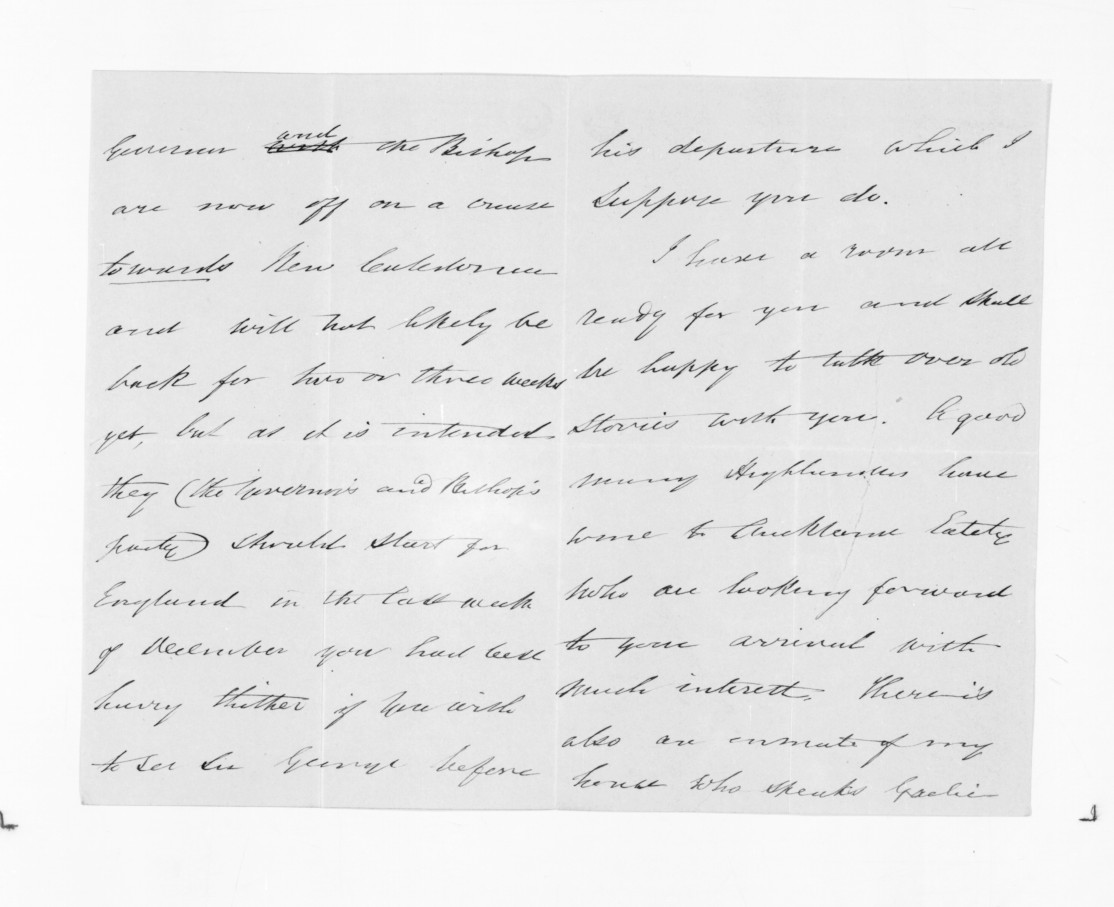 Governor and with the Bishop
are now off on a cruise
towards New Caledonia
and will not likely be
back for two or three weeks
yet, but as it is intended
they (the Governor's and Bishop's
party) should start for
England in the last week
of December you had best
hurry thither if you wish
to see Sir George before
his departure which I
suppose you do.
I have a room all
ready for you and shall
be happy to talk over old
stories with you. A good
many Highlanders have
come to Auckland lately
who are looking forward
to your arrival with
much interest. There is
also an inmate of my
house who speaks Gaelic